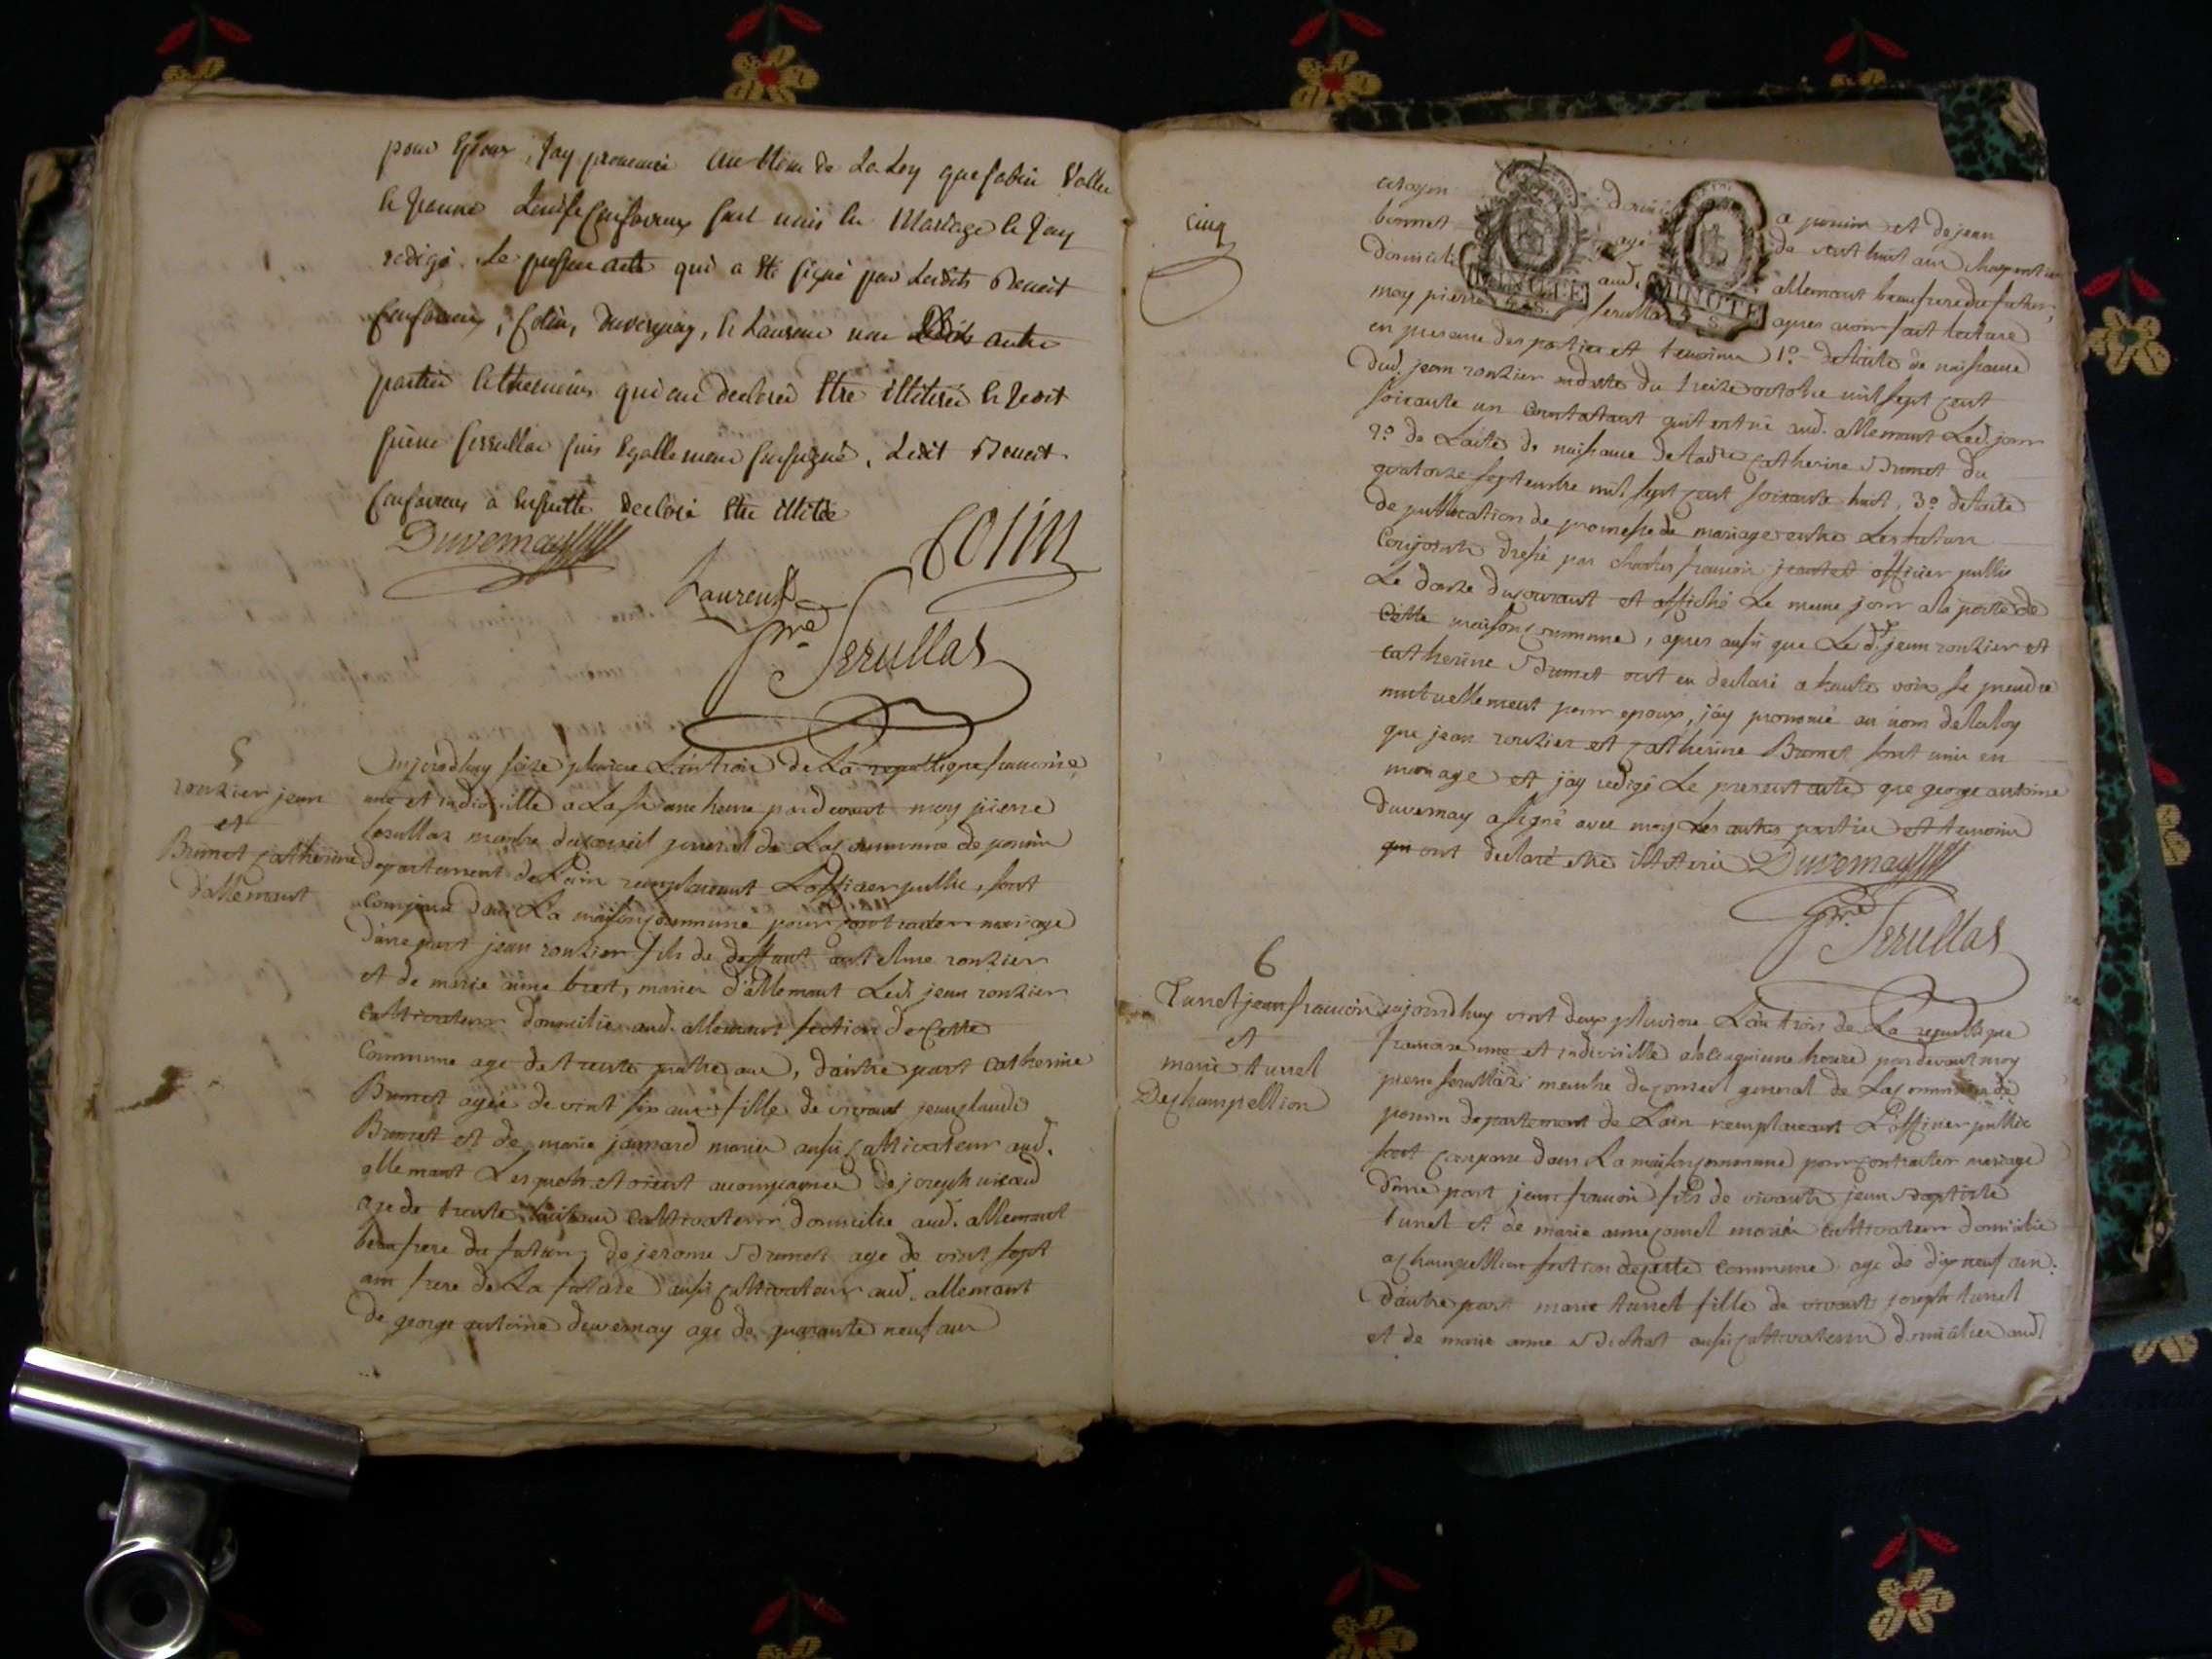 pour Epoux, Jay prononcé au Nom de La Loy que fabien Vallet
redigé. Le present acte qui a Eté signé par Lesdits Benoit
Colin, Duvernay, & Laurent non autre
parties qui ont declaré Etre illitérés & Moi
pierre Serullas suis Egallement soussigné, Ledit Benoit
a Ensuitte declaré Etre illitéré
Duvernay
Colin
Laurent
pre Serullas
5
ronzier jean
et
Brunet catherine
d'allemant
aujourdhuy seize pluviose L'an trois de La republique francoise
une et indivisible a La heure pardevant moy pierre
serullaz membre du conseil general de La commune de poncin
departement de L'ain remplacant L'officier public, sont
comparus dans La maison commune pour contracter mariage
d'une part jean ronzier fils de deffunt antelme ronzier
et de marie aime mariés d'allemant Led. jean ronzier
cultivateur domicilié aud. allemant section de cette
commune age de trente quatre ans, dautre part catherine
Brunet agée de vint six ans fille de vivant jean claude
Brunet et de marie jannard mariés aussi cultivateur aud.
allemant Lesquels etoient acompagnés de joseph
age de trente huit ans cultivateur domicilié aud. allemant
beaufrere du futur, de jerome Brunet age de vint sept
ans frere de La future aussi cultivateur aud. allemant
de george antoine duvernay age de quarante neuf ans
cinq
citoyen a poncin et de jean
bonnet agé de vint huit ans charpentier
domicilié aud. allemant beaufrere du futur,
MINUTE MINUTE
moy pierre serullaz apres avoir fait lecture
en presence des parties et temoins 1o de L'acte de naissance
dud. jean ronzier en date du treize octobre mil sept cent
soixante un constatant qu'il est né aud. allemant Led. jour
2o de L'acte de naissance de Ladte catherine Brunet du
quatorze septembre mil sept cent soixante huit, 3o de L'acte
de publication de promesse de mariage entre Les futurs
conjoints dressé par charles francois officier public
Le douze du courant et affiché Le meme jour a la porte de
cette maison commune, apres aussi que Lesd. jean ronzier et
catherine Brunet ont eu declaré a haute voix se prendre
mutuellement pour epoux, jay prononcé au nom de la loy
que jean ronzier et catherine Brunet sont unis en
mariage et jay redigé Le present acte que george antoine
duvernay a signé avec moy Les autres parties et temoins
qui ont declaré etre illiterés Duvernay
pre Serullas
6
Turrel jean francois
et
marie turrel
De champeillion
aujourdhuy vint deux pluviose L'an trois de La republique
francoise une et indivisible a la cinquieme heure pardevant moy
pierre serullaz membre du conseil general de La commune de
poncin departement de L'ain remplacant L'officier public
sont comparus dans La maison commune pour contracter mariage
d'une part jean francois fils de vivants jean Baptiste
turrel et de marie anne mariés cultivateur domicilié
a champeillion section de cette commune age de dix neuf ans.
dautre part marie turrel fille de vivants joseph turrel
et de marie anne aussi cultivateur domiciliés aud.